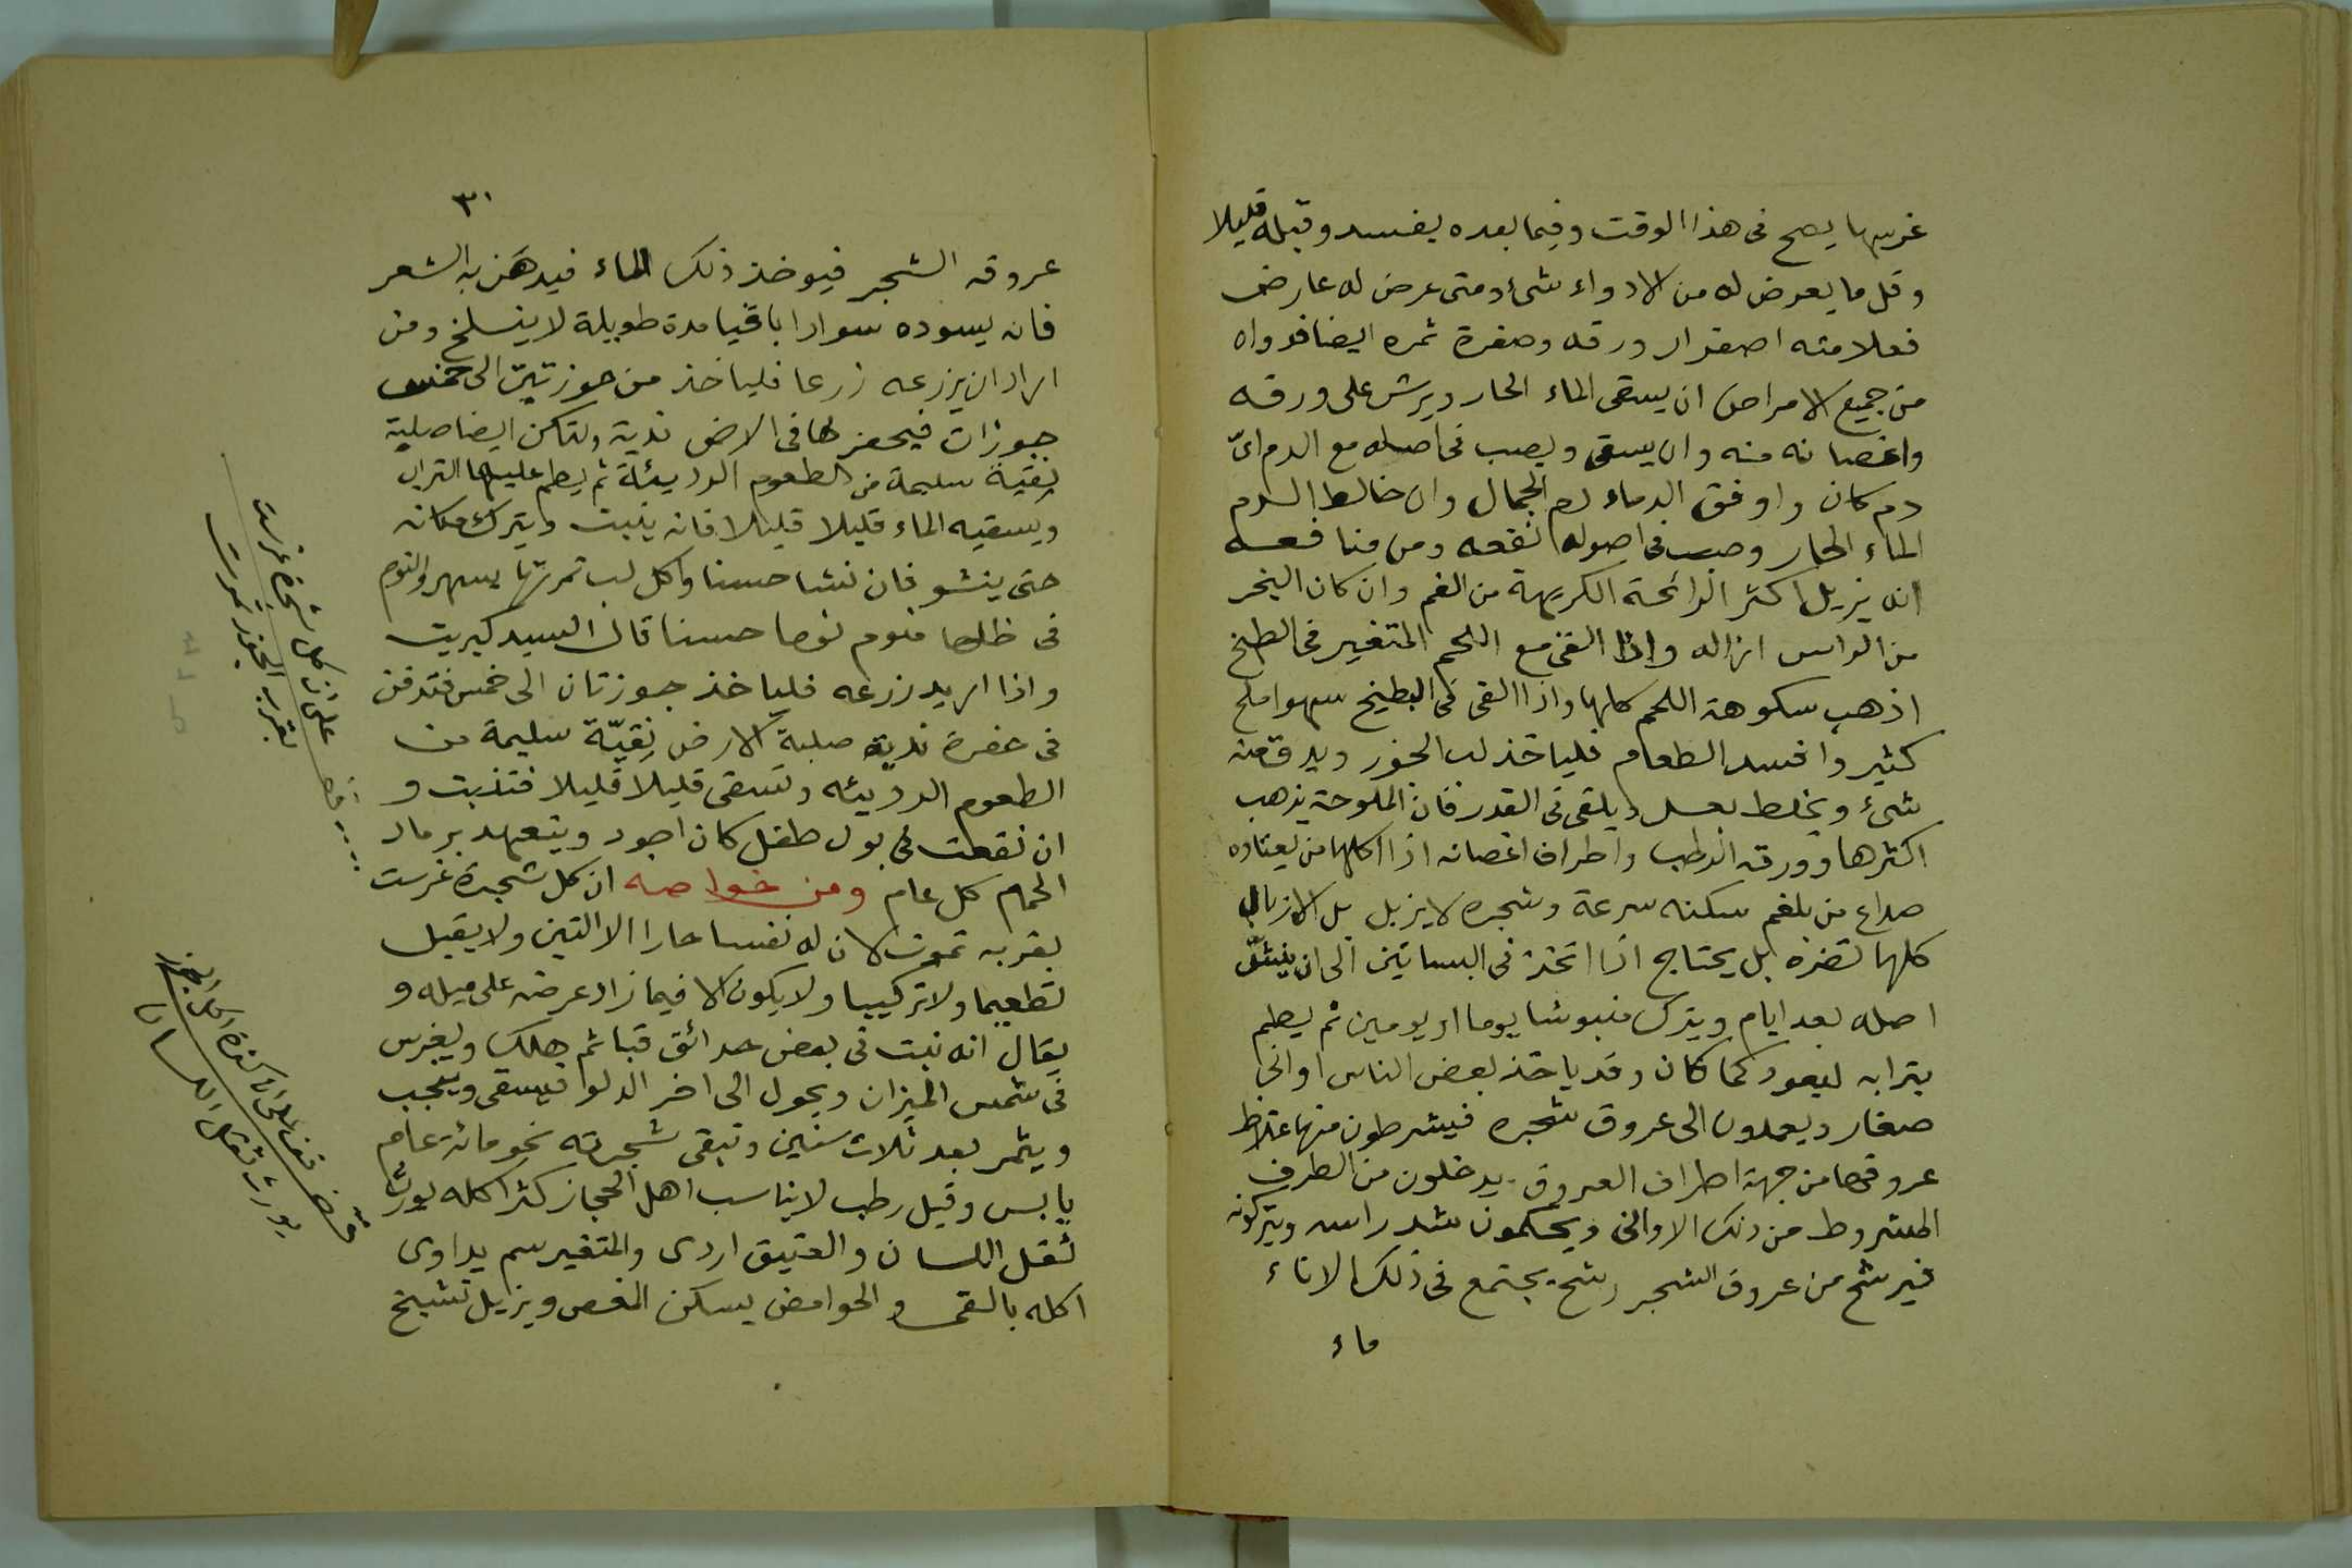 غرسها يصح فى هذا الوقت وفيما بعده يفسد وقبله قليلا
وقل ما يعرض له من الادواء شئ ومتى عرض له عارض
فعلامته اصفرار ورقه وصفرة ثمره ايضا فدواه
من جميع الامراض ان يسقى الماء الحار ويرش على ورقه
واغصانه منه وان يسقى ويصب فى اصله مع الدم اىّ
دم كان واوفق الدماء دم الجمال وان خالط الدم
الماء الحار وصب فى اصوله نفعه ومن منافعه
انه يزيل اكثر الرائحة الكريهة من الفم وان كان البخر
من الراس ازاله واذا القى مع اللحم المتغير فى الطبخ
اذهب سكوهة اللحم كلها واذا القى فى البطيخ سهوا ملح
كثير وافسد الطعام فلياخذ لب الجوز ويدق منه
شئ ويخلط بعسل ويلقى فى القدر فان الملوحة يذهب
اكثرها وورقه الرطب واطراف اغصانه اذا اكلها من يعتاده
صداع من بلغم سكنه سرعة وشجره لا يزبل بل الازبال
كلها تضره بل يحتاج اذا اتخذ فى البساتين الى ان ينبش
اصله بعد ايام ويترك منبوشا يوما او يومين ثم يطم
بترابه ليعود كما كان وقد ياخذ بعض الناس اوانى
صغار ويعمدون الى عروق شجره فيشرطون منها غلاظ
عروقها من جهة اطراف العروق يدخلون من الطرف
المشروط من ذلك الاوانى ويحكمون شد راسه ويتركونه
فيرشح من عروق الشجر رشح يجتمع فى ذلك الاناء
ماء
٣٠
عروقه الشجر فيوخذ ذلك الماء فيدهن به الشعر
فانه يسوده سوادا باقيا مدة طويلة لا ينسلخ ومن
اراد ان يزرعه زرعا فلياخذ من جوزتين الى خمس
جوزات فيحفر لها فى الارض ندية ولتكن ايضا صلبة
نقية سليمة من الطعوم الرديئة ثم يطم عليها التراب
ويسقيه الماء قليلا قليلا فانه ينبت ويترك مكانه
حتى ينشو فان نشا حسنا واكل لب ثمرتها يسهر والنوم
فى ظلها منوم نوما حسنا قال السيد كبريت
واذا اريد زرعه فلياخذ جوزتان الى خمس فتدفن
فى حفرة ندية صلبة الارض نقيّة سليمة من
الطعوم الرديئه وتسقى قليلا قليلا فتنبت و
ان نقعت فى بول طفل كان اجود ويتعهد برماد
الحمام كل عام ومن خواصه ان كل شجرة غرست
بقربه تموت لان له نفسا حارا الا التين ولا يقبل
تطعيما ولا تركيبا ولا يكون الا فيما زاد عرضه على ميله و
يقال انه نبت فى بعض حدائق قبا ثم هلك ويغرس
فى شمس الميزان ويحول الى اخر الدلوا فيسقى ويجب
ويثمر بعد ثلاث سنين وتبقى شجرته نحو مائة عام
يابس وقيل رطب لا يناسب اهل الحجاز كثرا كله يورث
ثقل اللسان والعتيق اردى والمتغير سم يداوى
اكله بالقى والحوامض يسكن المغص ويزيل تشبيخ
على ان كل شجرة غرست
بقرب الجوز تموت
قف على ان كثرة اكل الجوز
يورث ثقل اللسان